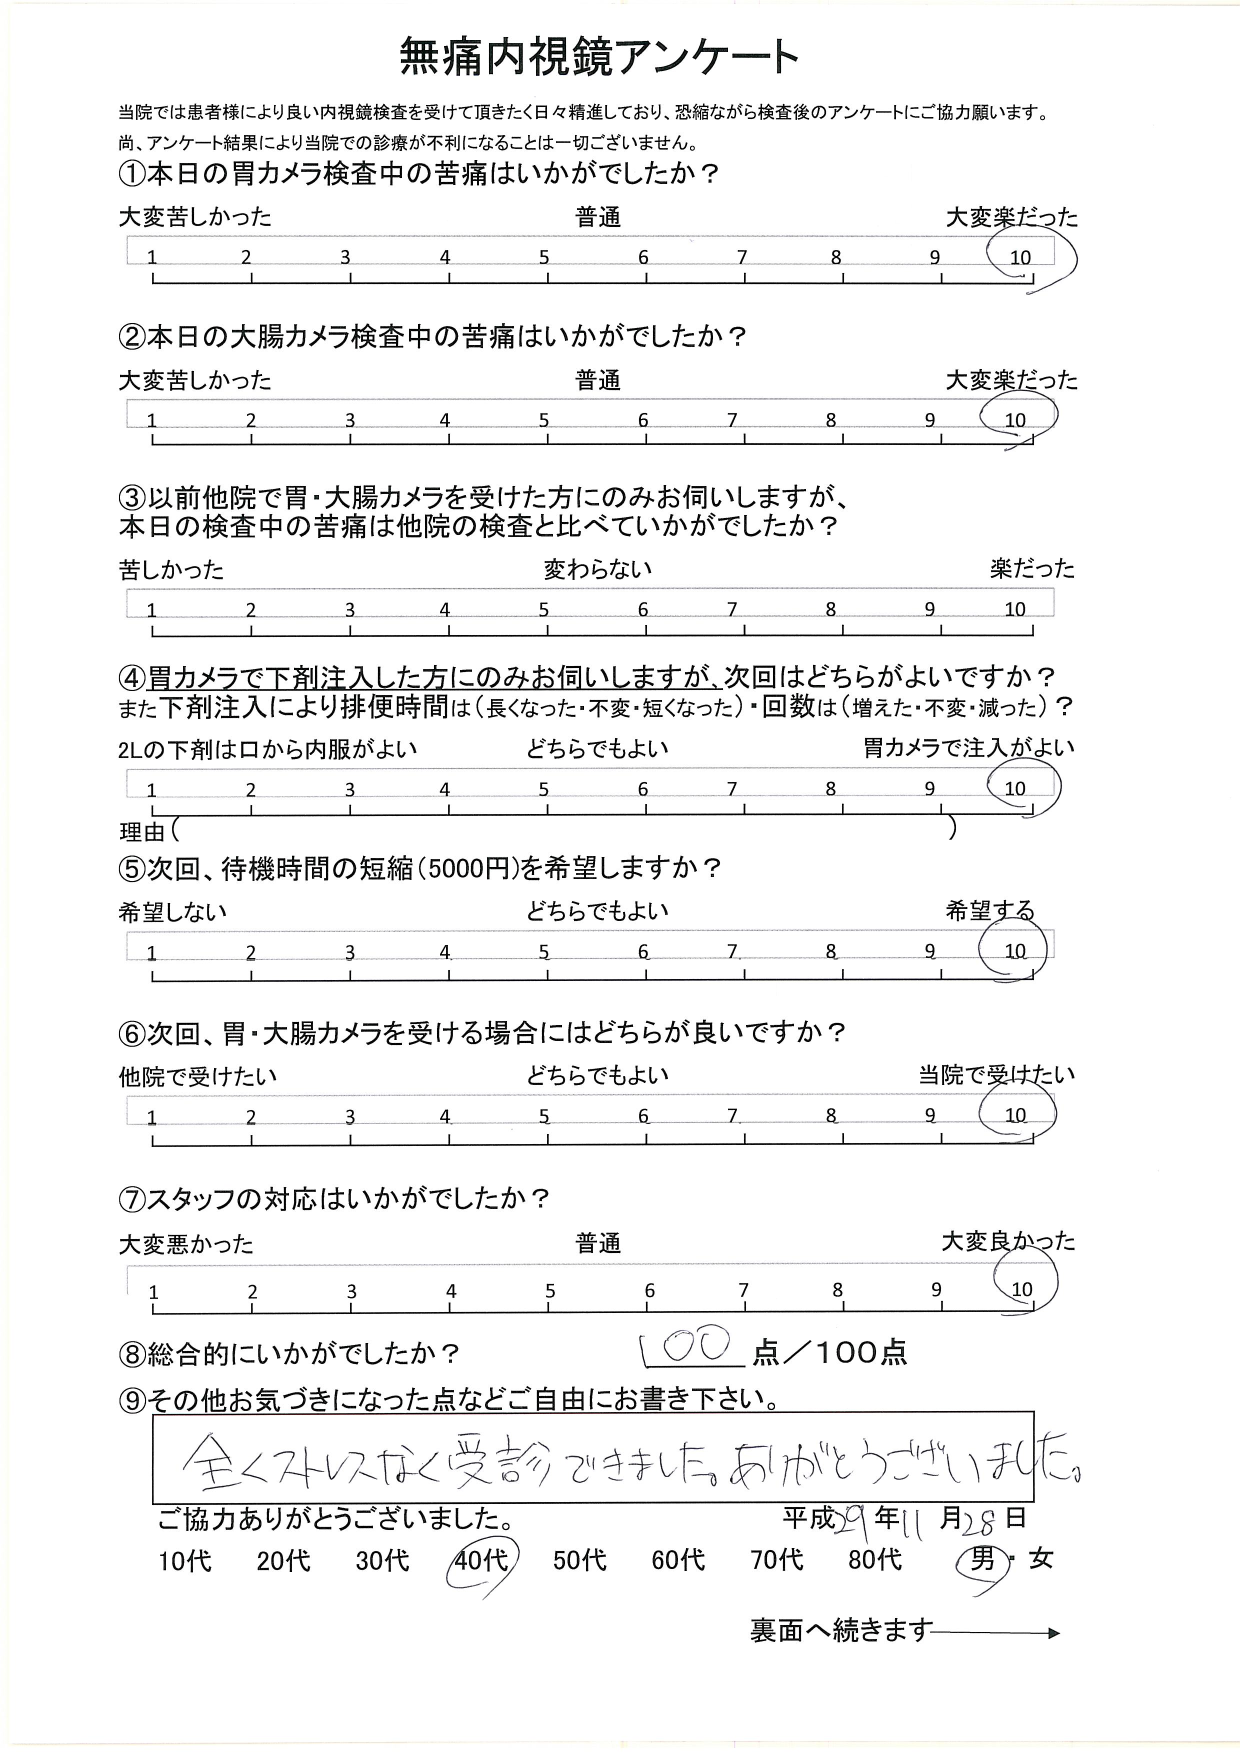 無痛内視鏡アンケート
当院では患者様により良い内視鏡検査を受けて頂きたく日々精進しており、恐縮ながら検査後のアンケートにご協力願います。
尚、アンケート結果により当院での診療が不利になることは一切ございません。
①本日の胃カメラ検査中の苦痛はいかがでしたか？
大変苦しかった 普通 大変楽だった
1 2 3 4 5 6 7 8 9 10
②本日の大腸カメラ検査中の苦痛はいかがでしたか？
大変苦しかった 普通 大変楽だった
1 2 3 4 5 6 7 8 9 10
③以前他院で胃・大腸カメラを受けた方にのみお伺いしますが、
本日の検査中の苦痛は他院の検査と比べていかがでしたか？
苦しかった 変わらない 楽だった
1 2 3 4 5 6 7 8 9 10
④胃カメラで下剤注入した方にのみお伺いしますが、次回はどちらがよいですか？
また下剤注入により排便時間は（長くなった・不変・短くなった）・回数は（増えた・不変・減った）？
2Lの下剤は口から内服がよい どちらでもよい 胃カメラで注入がよい
1 2 3 4 5 6 7 8 9 10
理由（ ）
⑤次回、待機時間の短縮（5000円）を希望しますか？
希望しない どちらでもよい 希望する
1 2 3 4 5 6 7 8 9 10
⑥次回、胃・大腸カメラを受ける場合にはどちらが良いですか？
他院で受けたい どちらでもよい 当院で受けたい
1 2 3 4 5 6 7 8 9 10
⑦スタッフの対応はいかがでしたか？
大変悪かった 普通 大変良かった
1 2 3 4 5 6 7 8 9 10
⑧総合的にいかがでしたか？ 100 点／100点
⑨その他お気づきになった点などご自由にお書き下さい。
全くストレスなく受診できました。ありがとうございました。
ご協力ありがとうございました。 平成29年11月28日
10代 20代 30代 40代 50代 60代 70代 80代 男・女
裏面へ続きます